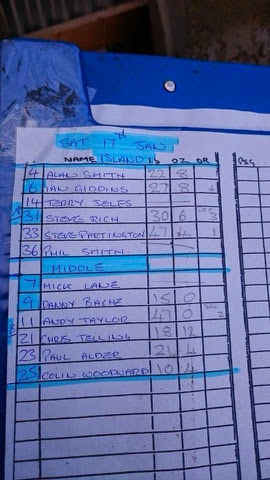 SAT 17th JAN
NAME ISLAND LB OZ DR PEG
4 ALAN SMITH 22 8
6 IAN GIDDINS 27 8 4
14 TERRY JELFS
31 STEVE RICH 30 6 SEC 3
33 STEVE PARTINGTON 47 4 1
36 PHIL SMITH
MIDDLE
7 MICK LANE
9 DANNY BACHE 15 0
11 ANDY TAYLOR 47 0 SEC 2
21 CHRIS TELLING 18 12
23 PAUL ALDER 21 4
25 COLIN WOODWARD 10 4